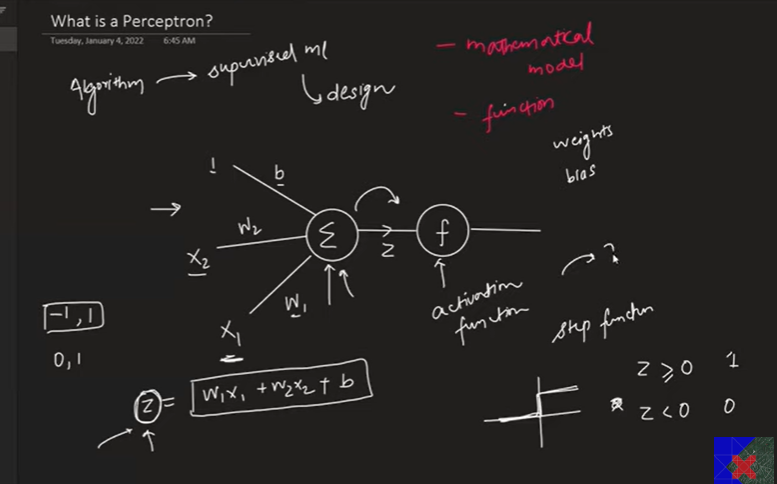 What is a Perceptron?
Tuesday, January 4, 2022 6:45 AM
Algorithm → supervised ml
design
- mathematical
model
- function
weights
bias
1
b
W2
X2
Σ
Z
f
W1
X1
activation
function
?
step functun
-1, 1
0, 1
Z = W1X1 + W2X2 + b
Z ⩾ 0 1
Z < 0 0